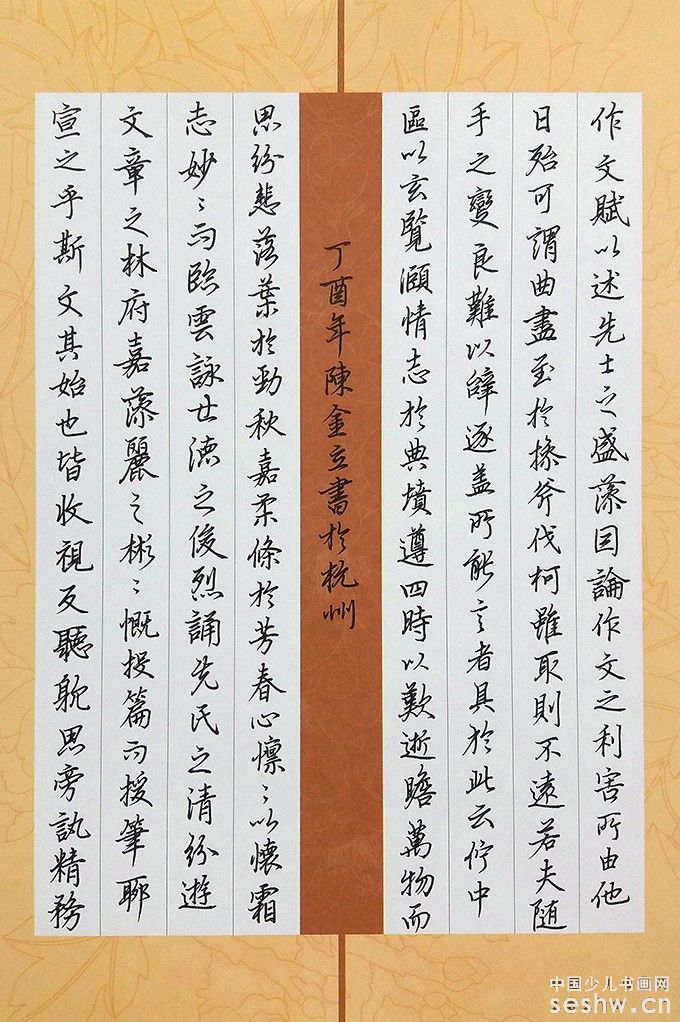 作文賦以述先士之盛藻因論作文之利害所由他
日殆可謂曲盡至於操斧伐柯雖取則不遠若夫随
手之變良難以辭逐盖所能言者具於此云佇中
區以玄覽頤情志於典墳遵四時以歎逝瞻萬物而
思紛悲落葉於勁秋嘉柔條於芳春心懍〻以懷霜
志妙〻而臨雲詠世德之俊烈誦先民之清紛遊
文章之林府嘉藻麗之彬〻慨投篇而援筆聊
宣之乎斯文其始也皆收視反聽耽思旁訊精務
丁酉年陳金立書於杭州
中国少儿书画网
seshw.cn